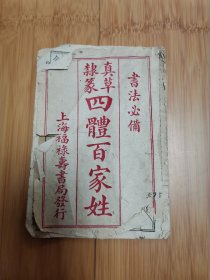 書法必備
真草
隸篆
四體百家姓
上海福祿壽書局發行